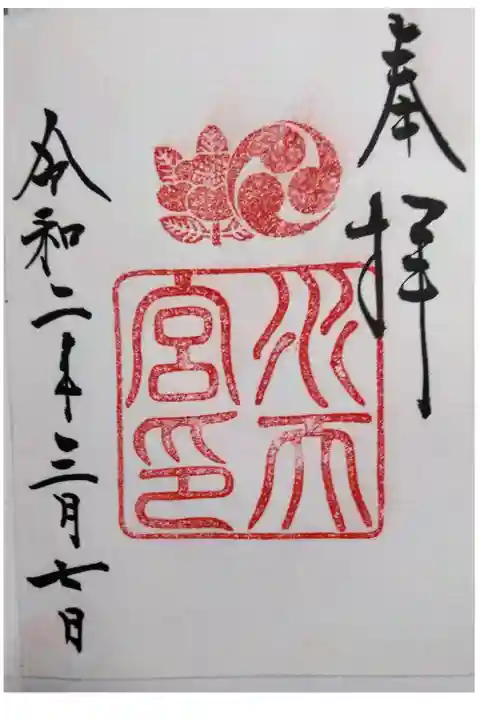 奉拝
水天
宮印
令和二年三月七日